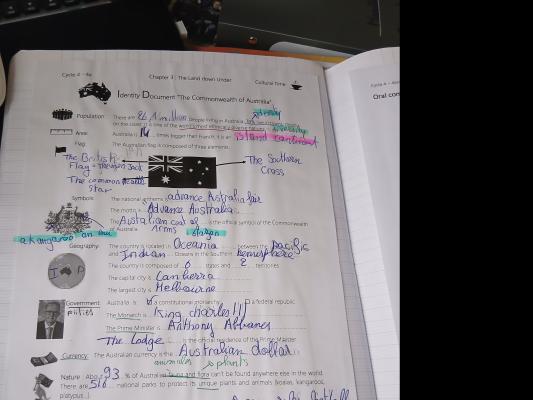 Cycle 4 - 4e Chapter 3 : The Land down Under Cultural Time
Identity Document "The Commonwealth of Australia"
Population There are 26,1 million people living in Australia
on the coast. It is one of the world's most ethnically diverse nations
Area: Australia is 14 times bigger than France, it is an Island continent
Flag The Australian flag is composed of three elements.
The British
Flag = The Union Jack
The Southern
Cross
The commonwealth
star
Symbols The national anthem is advance Australia fair
The motto is Advance Australia
The Australian coat of Arms is the official symbol of the Commonwealth
of Australia
a kangaroo an emu
Geography The country is located in Oceania between the pacific
and Indian Oceans in the Southern hemisphere
The country is composed of 6 states and 2 territories
The capital city is Canberra
The largest city is Melbourne
Government: Australia is: a constitutional monarchy a federal republic
The Monarch is King Charles III
The Prime Minister is Anthony Albanes
The Lodge is the official residence of the Prime Minister
Currency: The Australian currency is the Australian dollar
animals plants
Nature: About 93 % of Australian fauna and flora can't be found anywhere else in the world.
There are 516 national parks to protect its unique plants and animals (koalas, kangaroos,
platypus...)
Cycle 4 -
Oral con